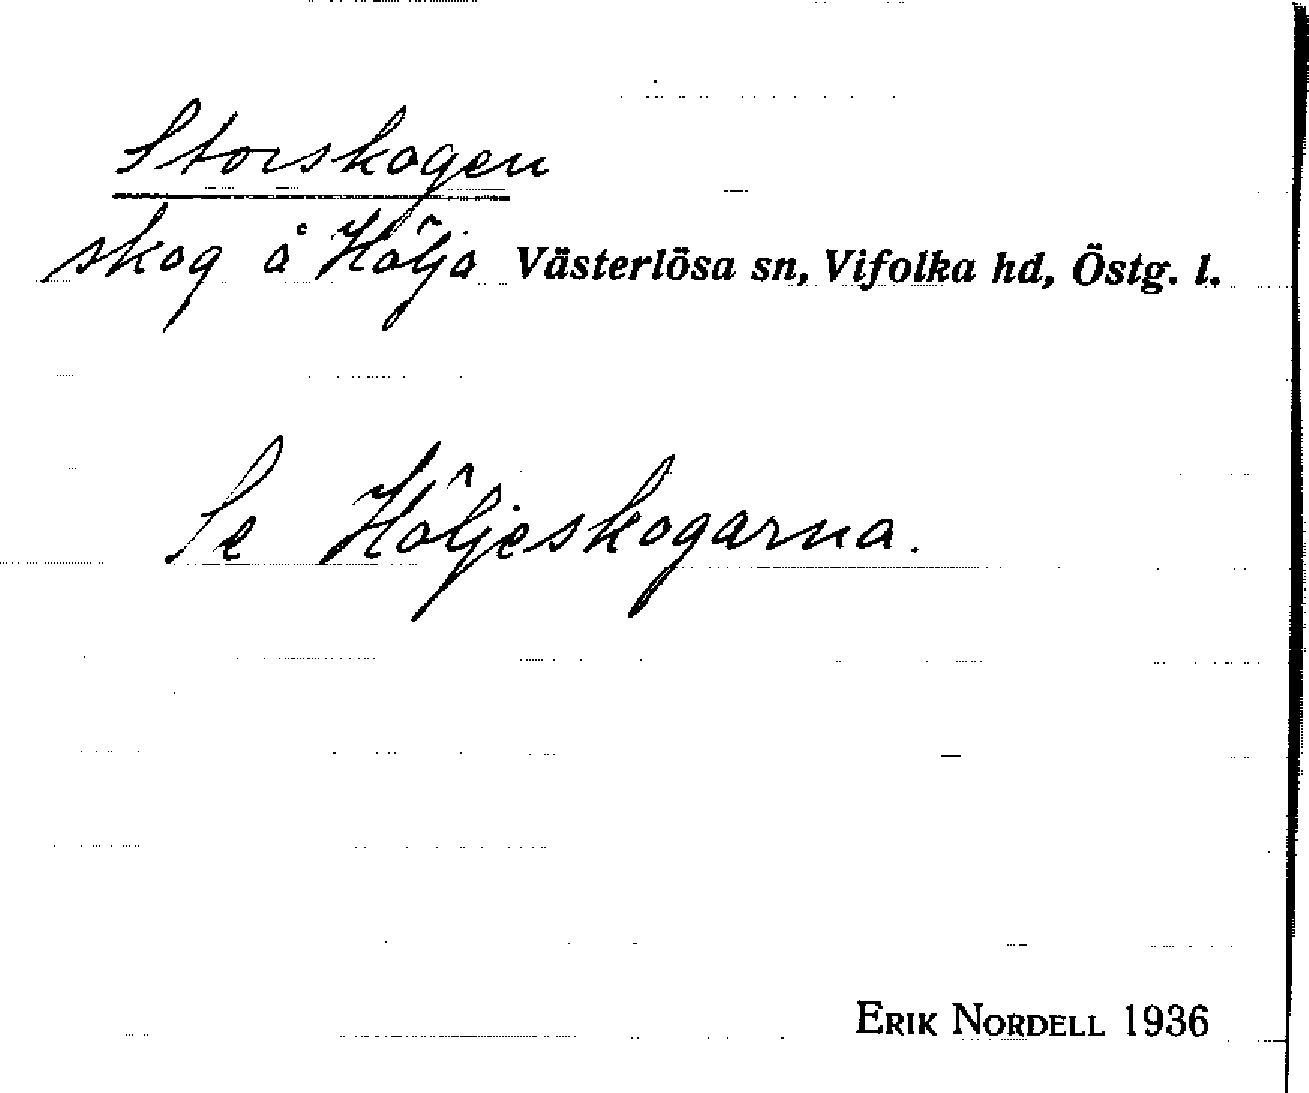 Storskogen
skog å Hölja Västerlösa sn, Vifolka hd, Östg. l.
Se Höljeskogarna.
ERIK NORDELL 1936